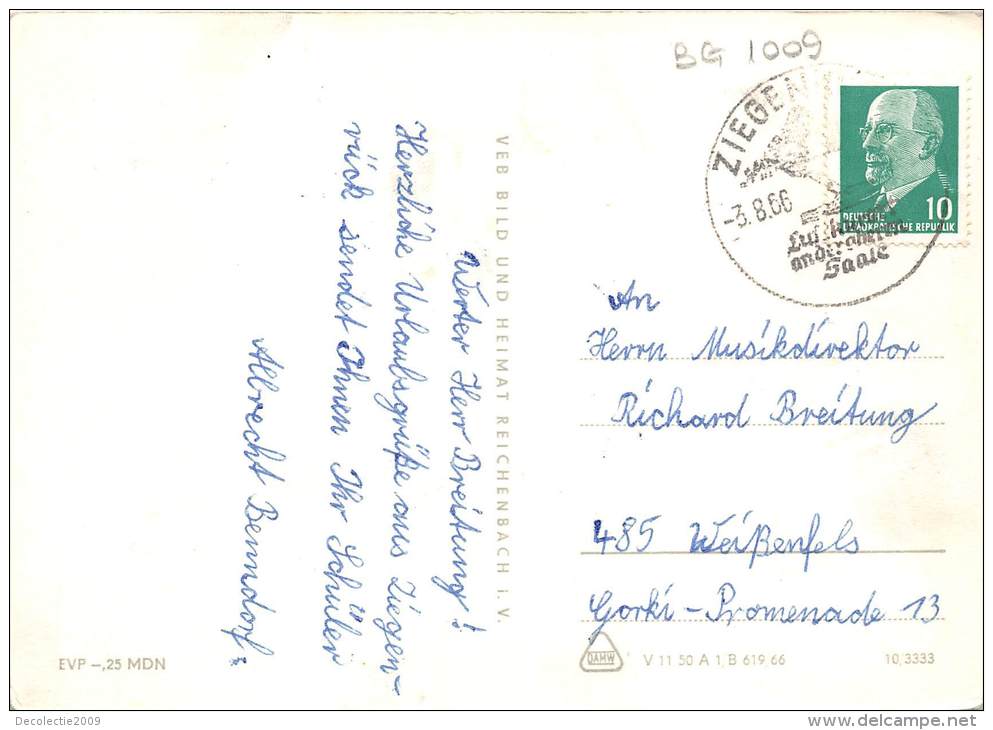 BG 1009
ZIEGEN
-3.8.66
an der oberen
Saale
10
DEUTSCHE
DEMOKRATISCHE REPUBLIK
Werter Herr Breitung!
Herzliche Urlaubsgrüße aus Ziegen-
rück sendet Ihnen Ihr Schüler
Albrecht Benndorf.
VEB BILD UND HEIMAT REICHENBACH I. V.
An
Herrn Musikdirektor
Richard Breitung
485 Weißenfels
Gorki-Promenade 13
EVP -,25 MDN
DAMW
V 11 50 A 1/B 619 66
10/3333
Decolectie2009
www.delcampe.net